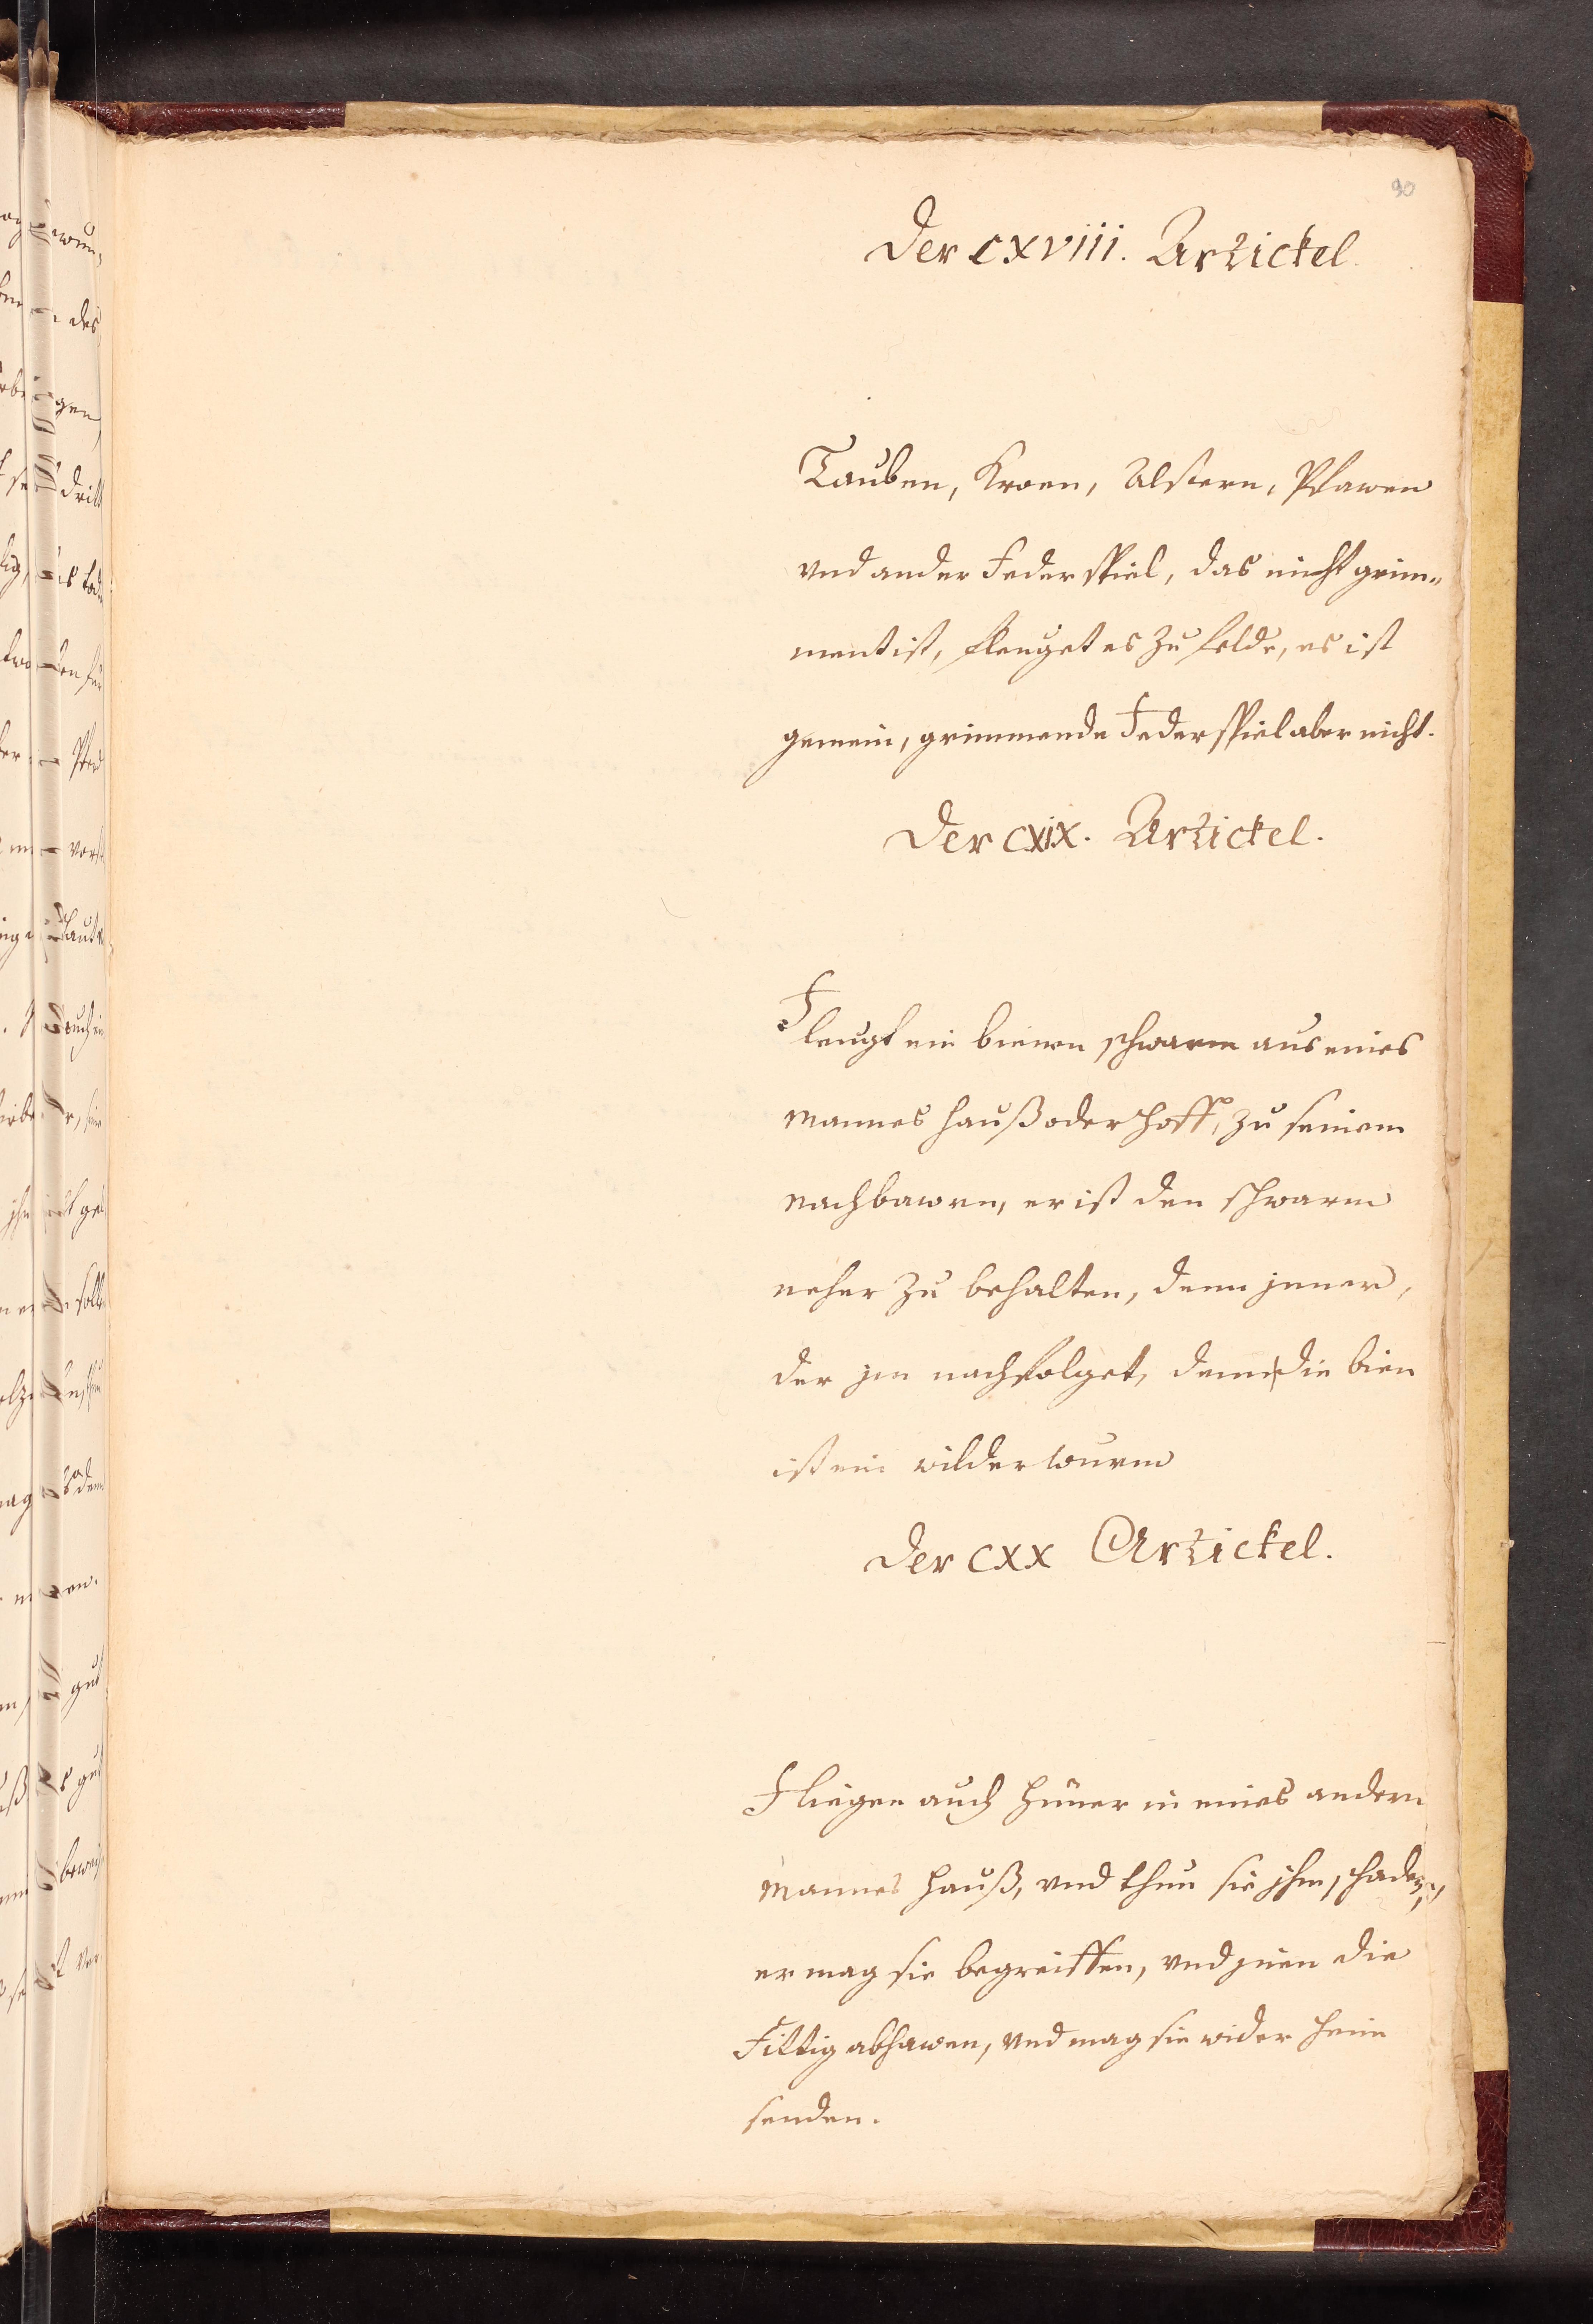 90
Der CXVIII. Artickel.
Tauben, Kroen, Alstern, Pfawen
vnd ander Federspiel, das nicht grim„
ment ist, fleuget es zu felde, es ist
gemein, grimmende Federspiel aber nicht.
Der CXIX. Artickel.
Fleugt ein bienen schwarm aus eines
mannes hauß oder hoff, zu seinem
nachbawrn, er ist den schwarm
neher zu behalten, denn jener,
der jm nachfolget, denn die bien
ist ein wilder wurm
Der CXX Artickel.
Fliegen auch hüner in eines andern
mannes hauß, vnd thun sie jhm schaden,
er mag sie begreiffen, vnd jnen die
Fittig abhawen, vnd mag sie wider heim
senden.